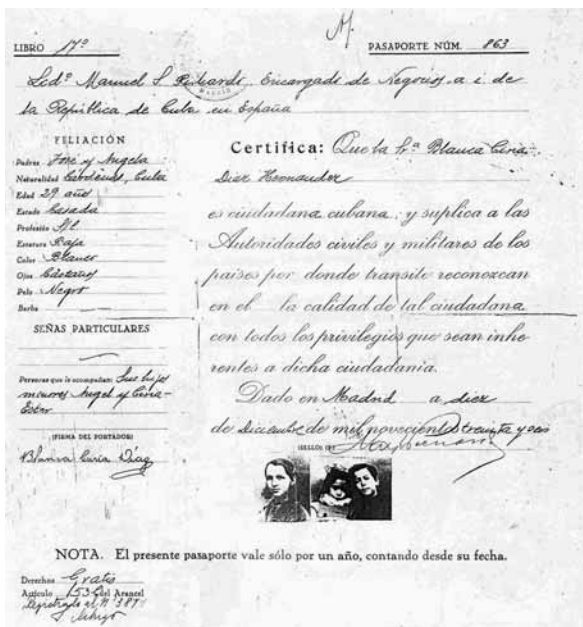 M.
LIBRO 17º
PASAPORTE NÚM. 863
Lcdº Manuel S. Pichardo, Encargado de Negocios a. i. de
la República de Cuba en España
FILIACIÓN
Padres José y Angela
Naturalidad Cárdenas, Cuba
Edad 29 años
Estado Casada
Profesión
Estatura Baja
Color Blanco
Ojos Castaños
Pelo Negro
Barba
SEÑAS PARTICULARES
Personas que le acompañan: Sus hijos
menores Angel y Ciria-
Ester
(FIRMA DEL PORTADOR)
Blanca Ciria Díaz
Certifica: Que la Sª Blanca Ciria
Diaz Hernandez
es ciudadana cubana y suplica a las
Autoridades civiles y militares de los
paises por donde transite reconozcan
en el la calidad de tal ciudadana
con todos los privilegios que sean inhe
rentes a dicha ciudadania.
Dado en Madrid a diez
de Diciembre de mil novecientos treinta y seis
(SELLO)
NOTA. El presente pasaporte vale sólo por un año, contando desde su fecha.
Derechos Gratis
Artículo 153 del Arancel
Registrado al Nº